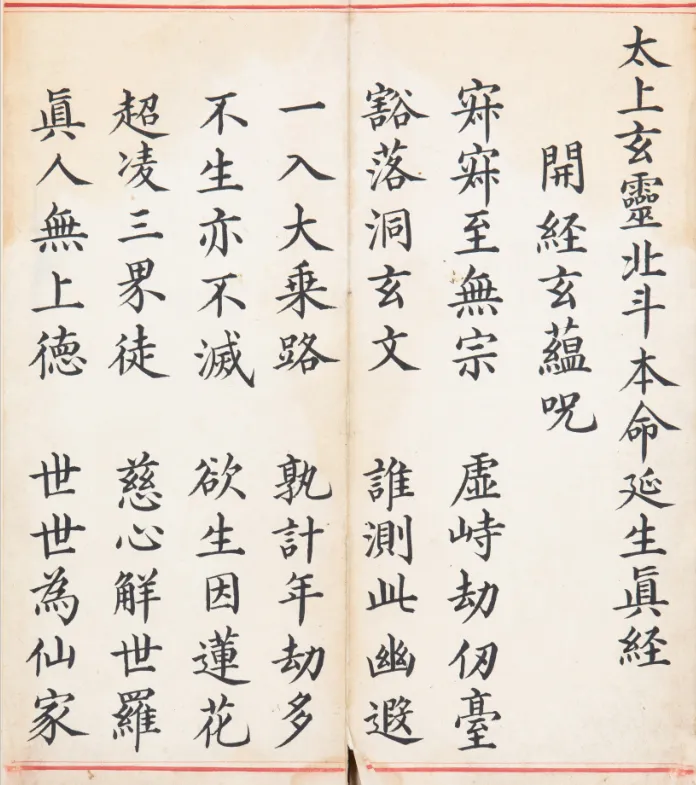 太上玄靈北斗本命延生眞経
開経玄蘊呪
寂寂至無宗 虛峙劫仞臺
豁落洞玄文 誰測此幽遐
一入大乗路 孰計年劫多
不生亦不滅 欲生因蓮花
超凌三界徒 慈心解世羅
眞人無上德 世世為仙家